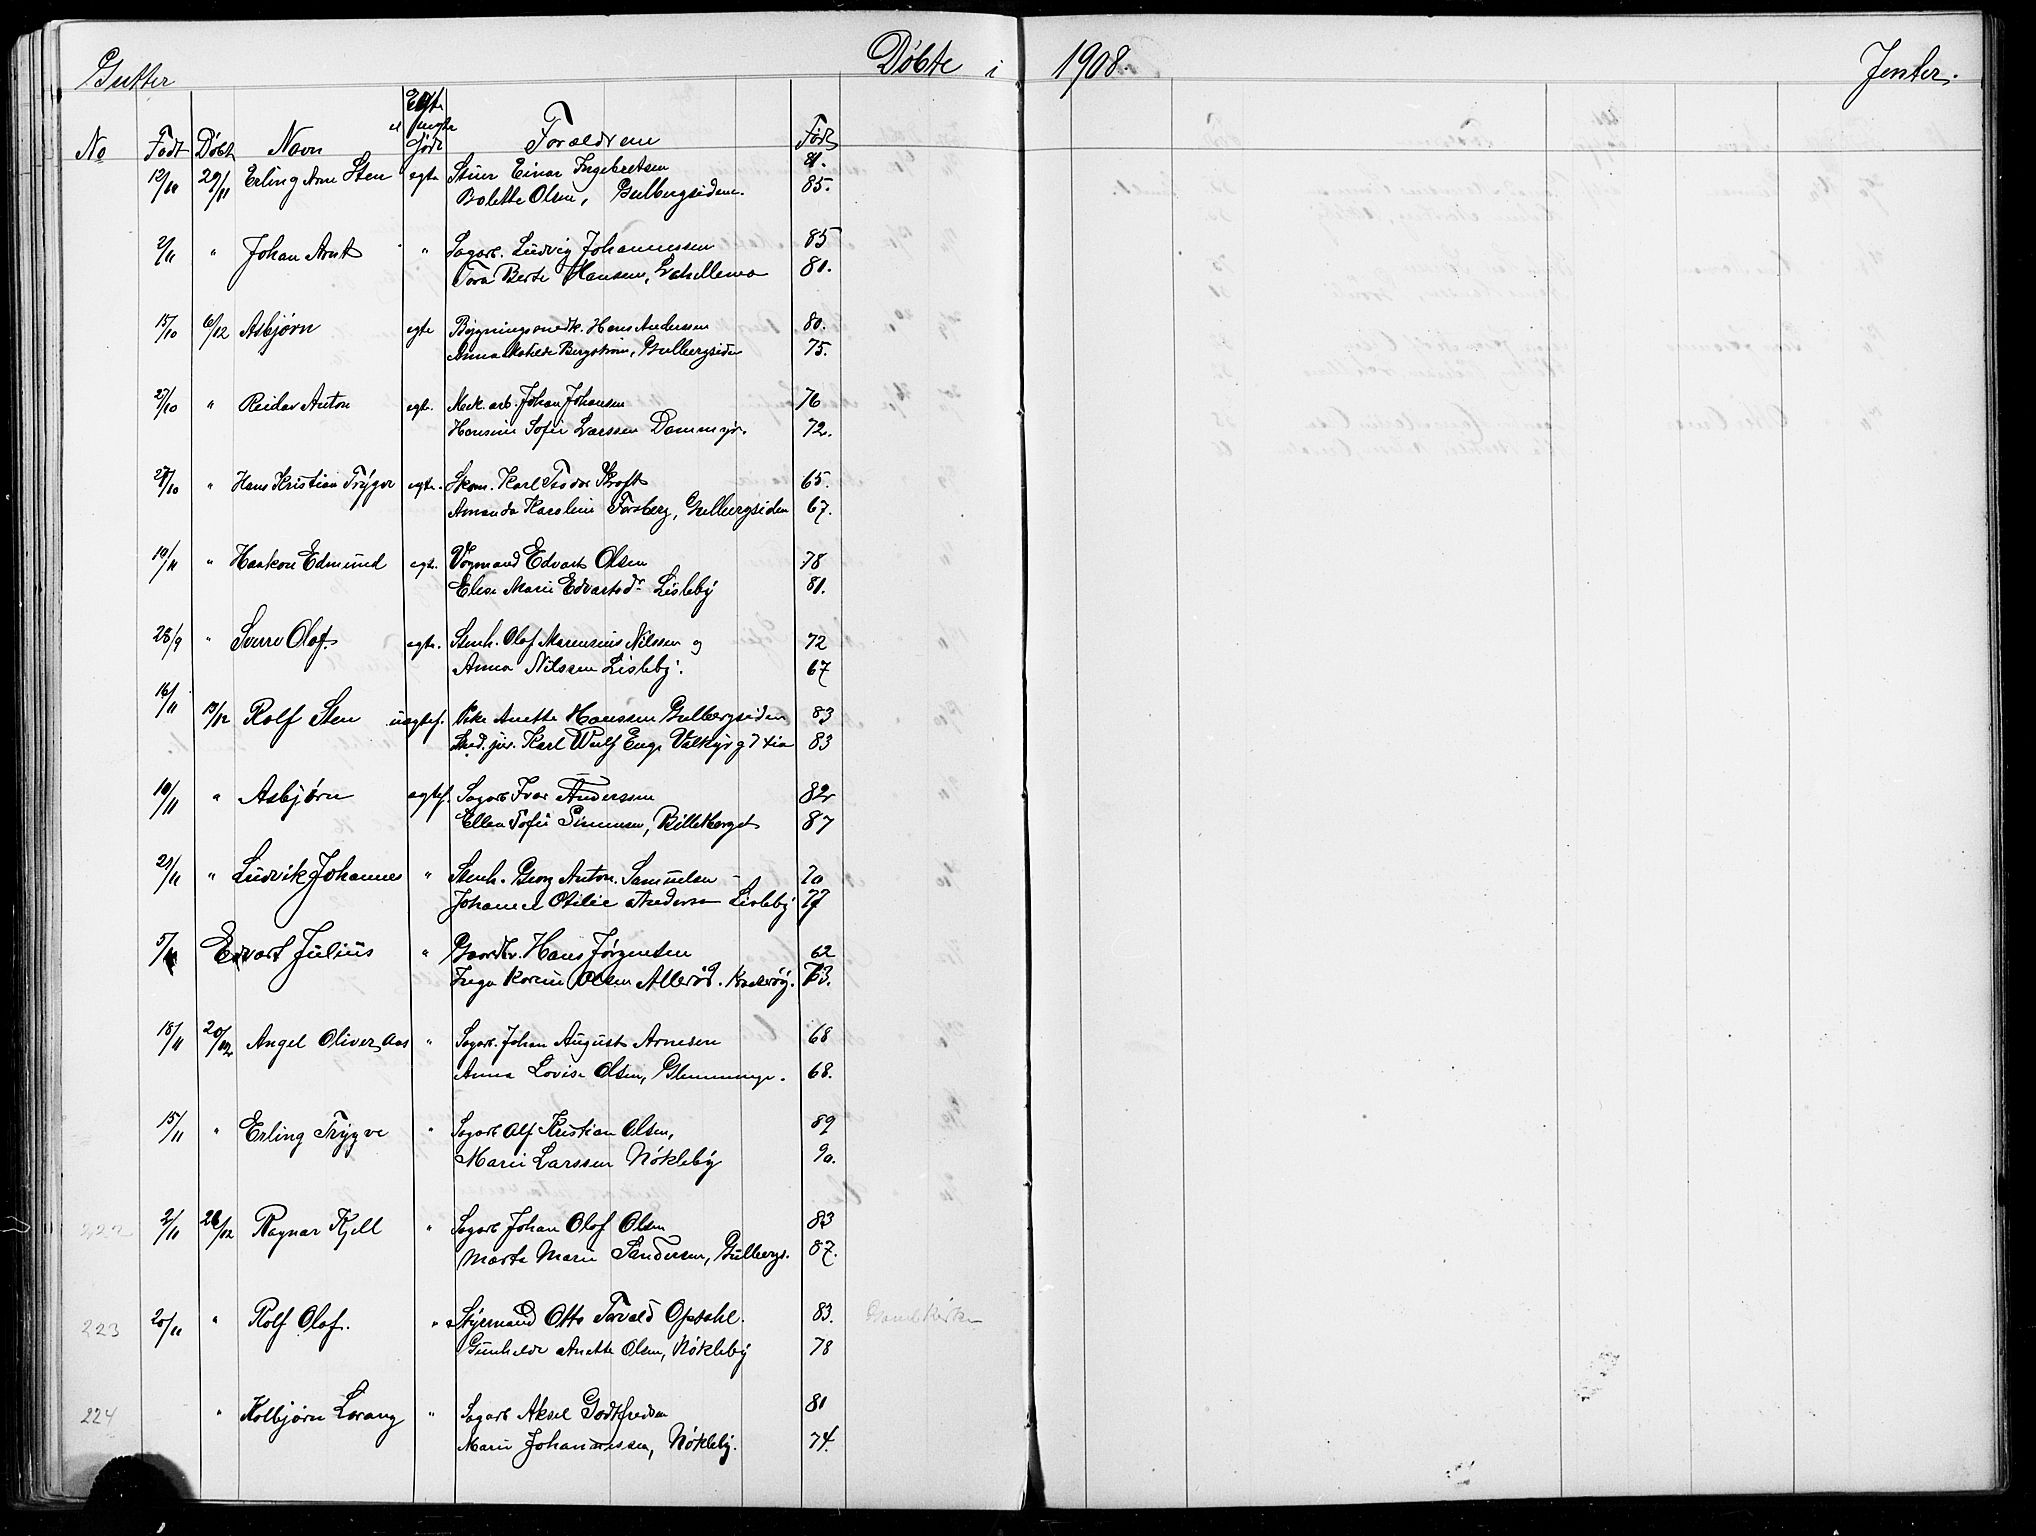 Gutter Døbte i 1908. Jenter.
Egte
el. uegte
No Født Døbt Navn født Forældrene Født
12/10 29/11 Erling Arne Sten egte Stuer Einar Ingebretsen 81.
Bolette Olsen, Gulbergsiden. 85.
2/11 " Johan Arnt " Sagarb. Ludvig Johannessen 85
Tora Berte Hansen, Labellemo 80.
15/10 6/12 Asbjørn egte Bygningssnedk. Hans Anderssen 80.
Anna Matilde Bergstrøm, Gulbergsiden 75.
27/10 " Reidar Anton egte. Mek. arb. Johan Johansen 76
Hansine Sofie Larssen Dammyr. 72.
29/10 " Hans Kristian Trygve egte. Skom. Karl Teodor Kroft 65.
Amanda Karoline Forsberg, Gulbergsiden 67.
10/11 " Haakon Edmund egte. Vognmand Edvart Olsen 78
Elise Marie Edvartsdr Lisleby 81.
28/9 " Sverre Olaf. egte. Stenh. Olaf Marensius Nilssen og 72
Anna Nilssen Lisleby. 67
16/11 13/12 Rolf Sten uegtef. Pike Anette Hanssen Gulbergsiden 83
Karl Wulf Enge Valkyrg 7 83
10/11 " Asbjørn egtef. Sagarb Ivar Anderssen 82
Ellen Sofie Simensen, Billetberget 87
21/11 " Ludvik Johannes " Stenh. Georg Anton Samuelsen 70
Johanne Otilie Andersen Lisleby 77
5/11 Edvart Julius " Gaardbr. Hans Jørgensen 62
Inga Karine Olsen Allerød. Kraakerøy. 73.
18/11 20/12 Angel Oliver Aas " Sagarb. Johan August Arnesen 68
Anna Lovise Olsen, Glemminge. 68.
15/11 " Erling Trygve " Sagarb Alf Kristian Olsen, 89
Marie Larssen Nøkleby 90.
222 2/11 26/12 Ragnar Kjell " Sagarb Johan Olaf Olsen 83
Marta Marie Sandersen, Gulbergs. 87.
223 20/11 " Rolf Olaf. " Styrmand Otto Torvald Opsahl. 83.
Gunhilde Anette Olsen, Nøkleby 78
224 " Kolbjørn Lorang " Sagarb Aksel Godtfredsen 81
Marie Johannessen, Nøkleby. 74.